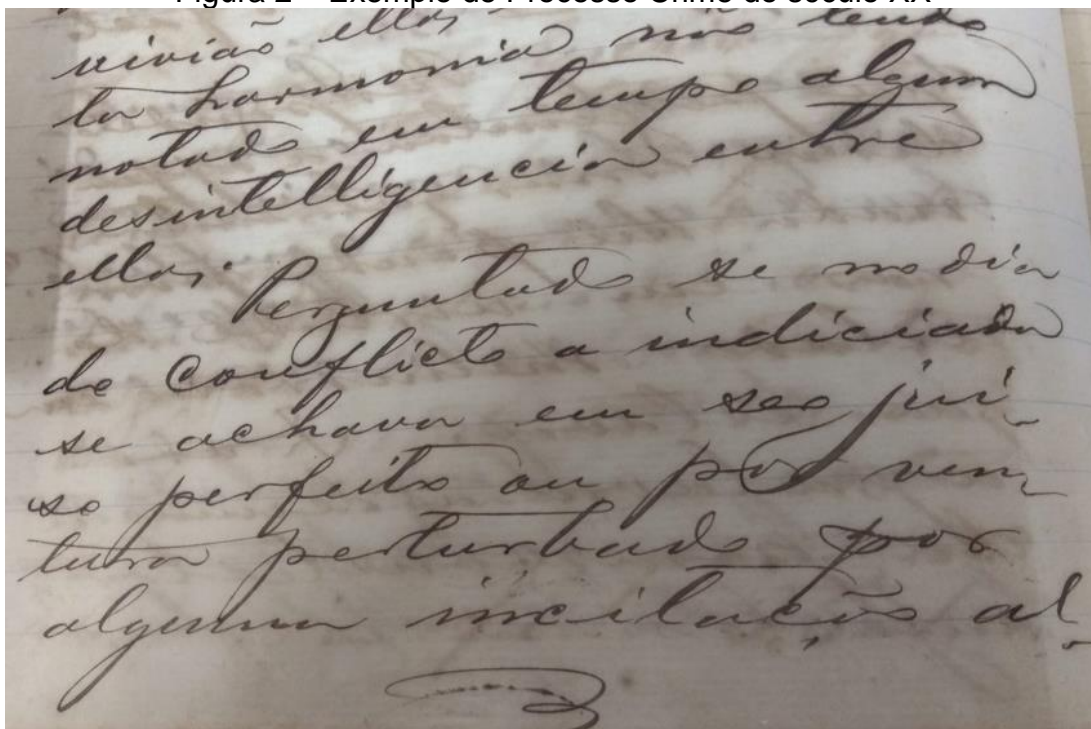 Figura 2 – Exemplo de Processo Crime do século XX
vivião ellas
ta harmonia não tendo
notado em tempo algum
desintelligencia entre
ellas. Perguntado se no dia
do conflicto a indiciada
se achava em seo jui-
so perfeito ou por ven-
tura perturbado por
alguma incitação al-